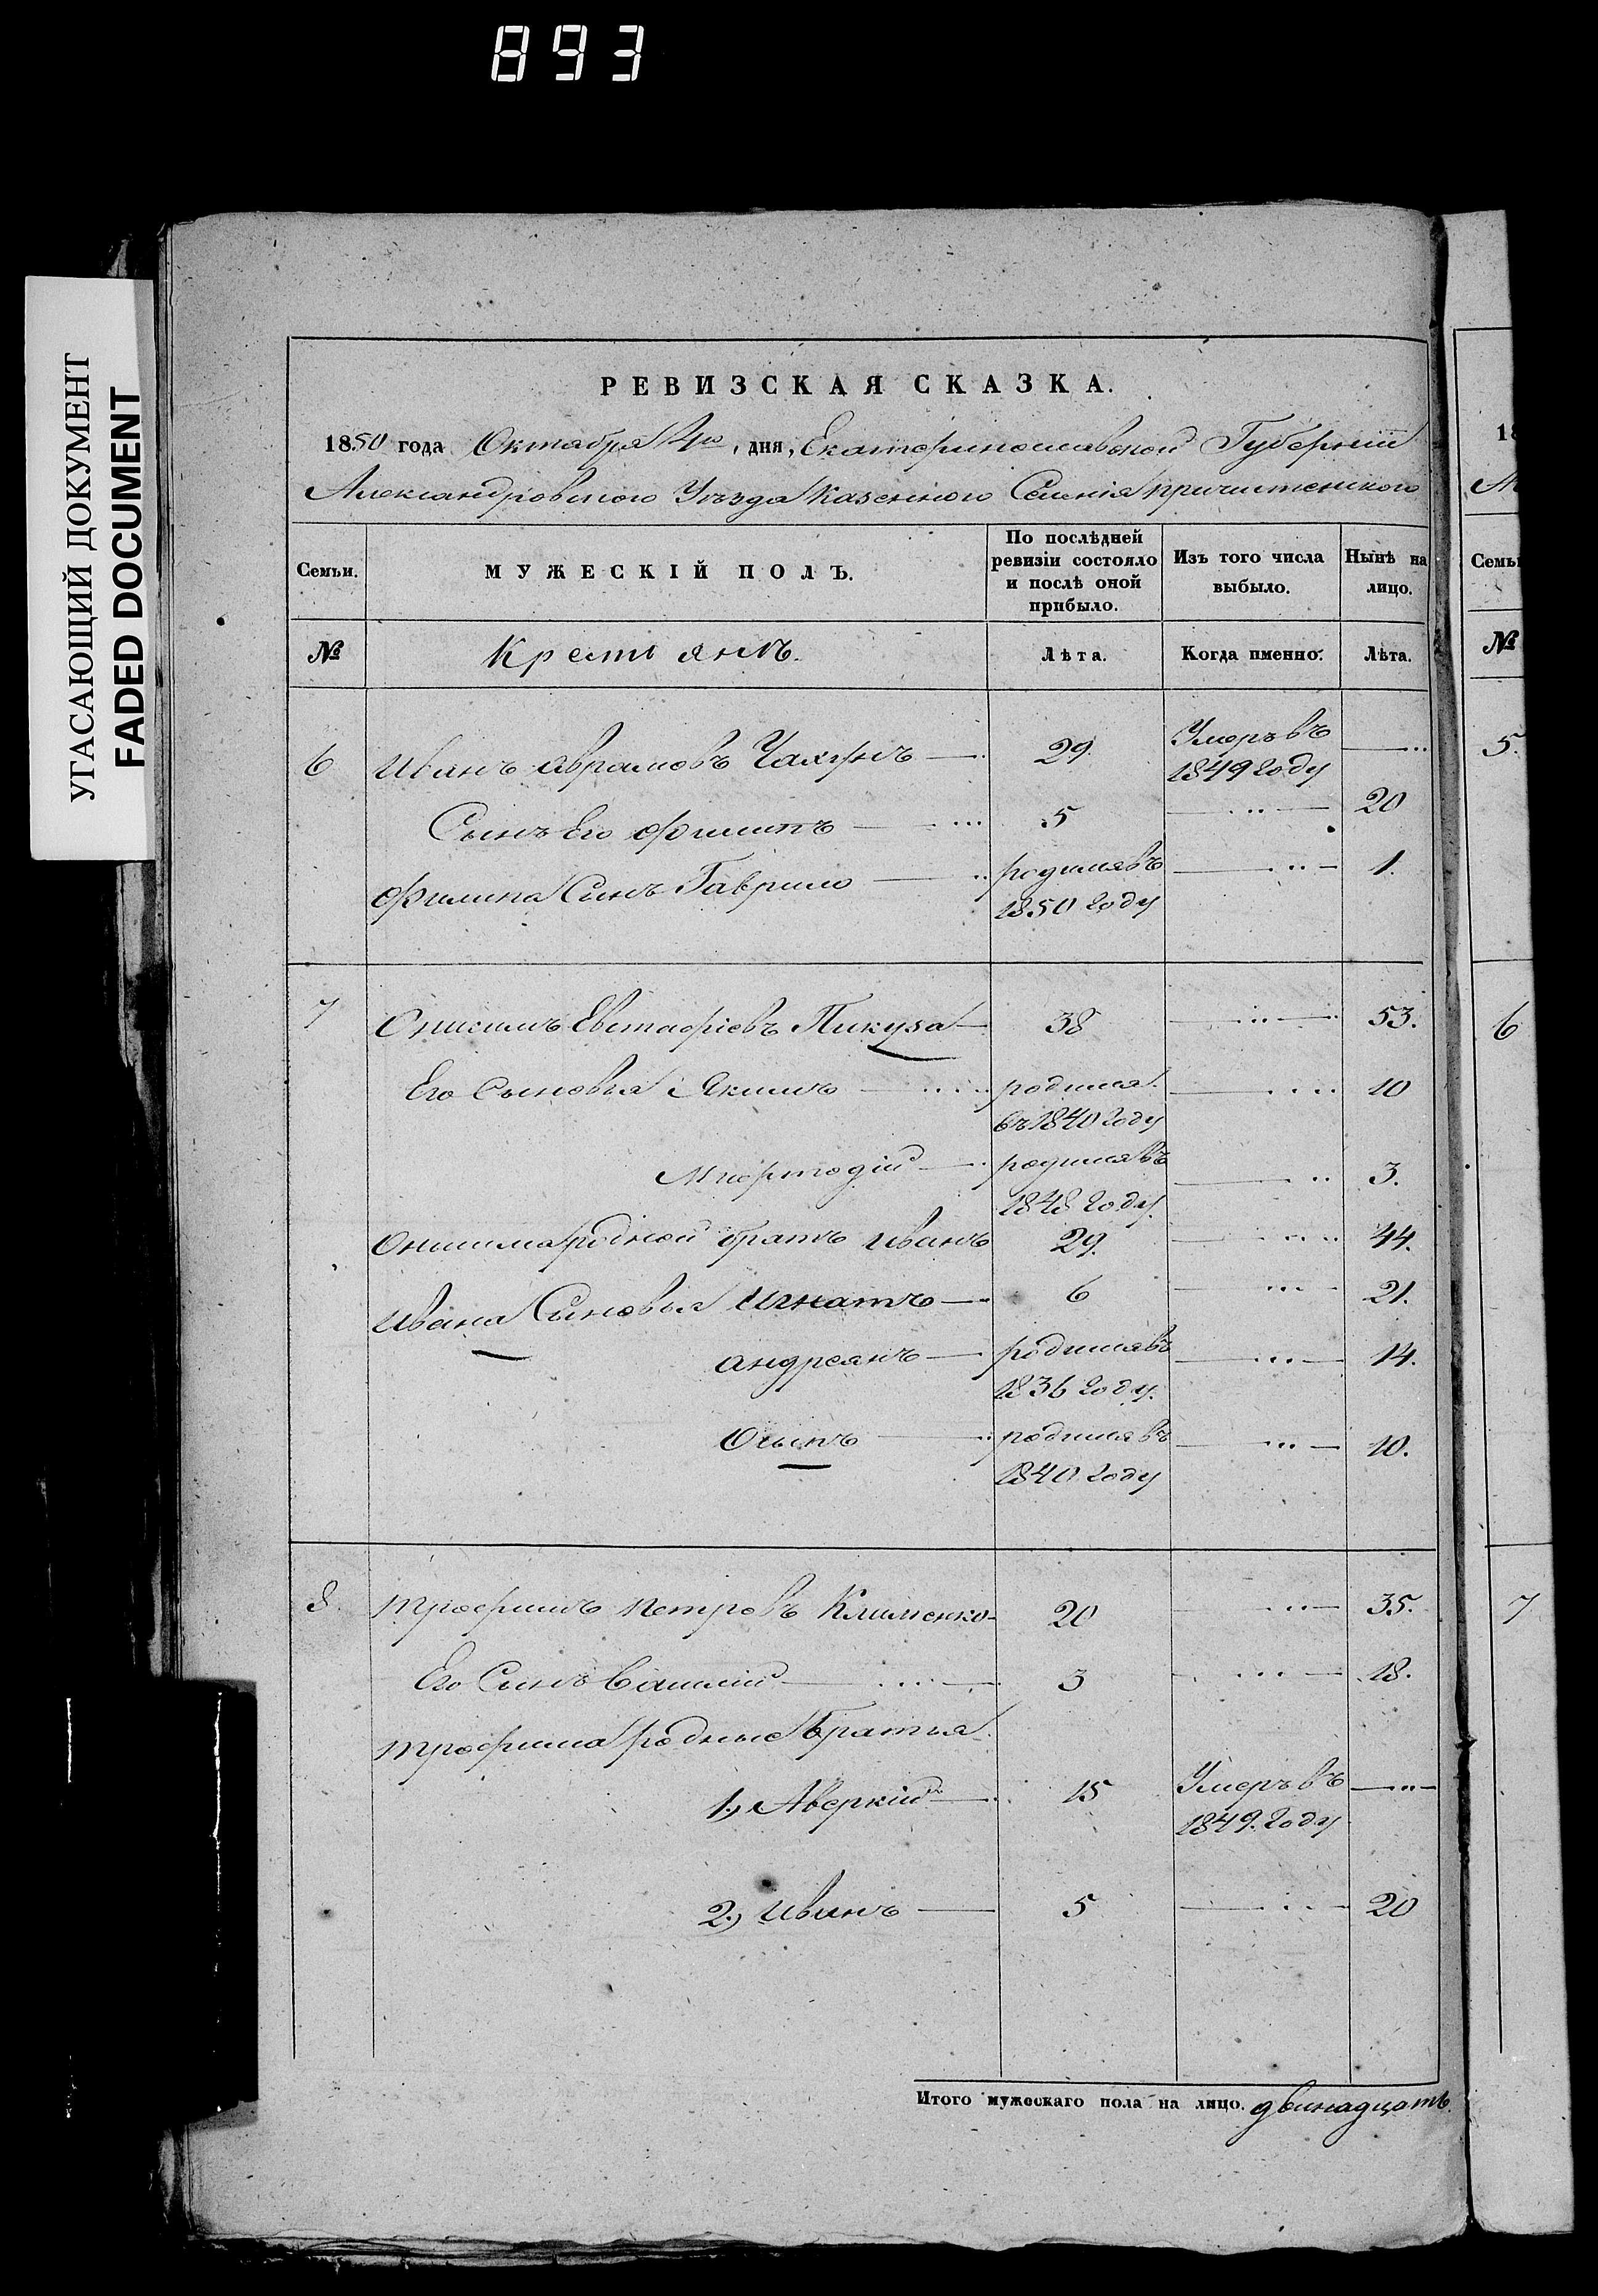 893
УГАСАЮЩИЙ ДОКУМЕНТ
FADED DOCUMENT
РЕВИЗСКАЯ СКАЗКА.
1850 года Октября 4го, дня, Екатеринославской Губерніи
Александровского Уѣзда Казенного Селенія пречистенского
Семьи. МУЖЕСКІЙ ПОЛЪ. По послѣдней ревизіи состояло и послѣ оной прибыло. Изъ того числа выбыло. Нынѣ на лицо.
№ Крестьянъ. Лѣта. Когда именно. Лѣта.
6 Иванъ аврамовъ 29. Умеръ въ 1849 году
Сынъ Его филипъ 5 20
филипа Синъ Гаврило родился въ 1850 году 1.
7 Онисимъ Евстафіевъ Пикуза 38 53.
Его Сыновья Якимъ родился въ 1840 году 10
родился въ 1848 году. 3.
Онисима родной братъ иванъ 29. 44.
ивана Сыновья игнатъ 6 21.
андреянъ родился въ 1836 году. 14.
Осипъ родился въ 1840 году 10.
8. трофимъ петровъ Клименко 20 35.
Его Синъ Василій 3 18.
трофима родные братья
1., Аверкій 15 Умеръ въ 1849. году
2., иванъ 5 20
Итого мужескаго пола на лицо. двинадцать.
18
Семьи
№
5.
6
7